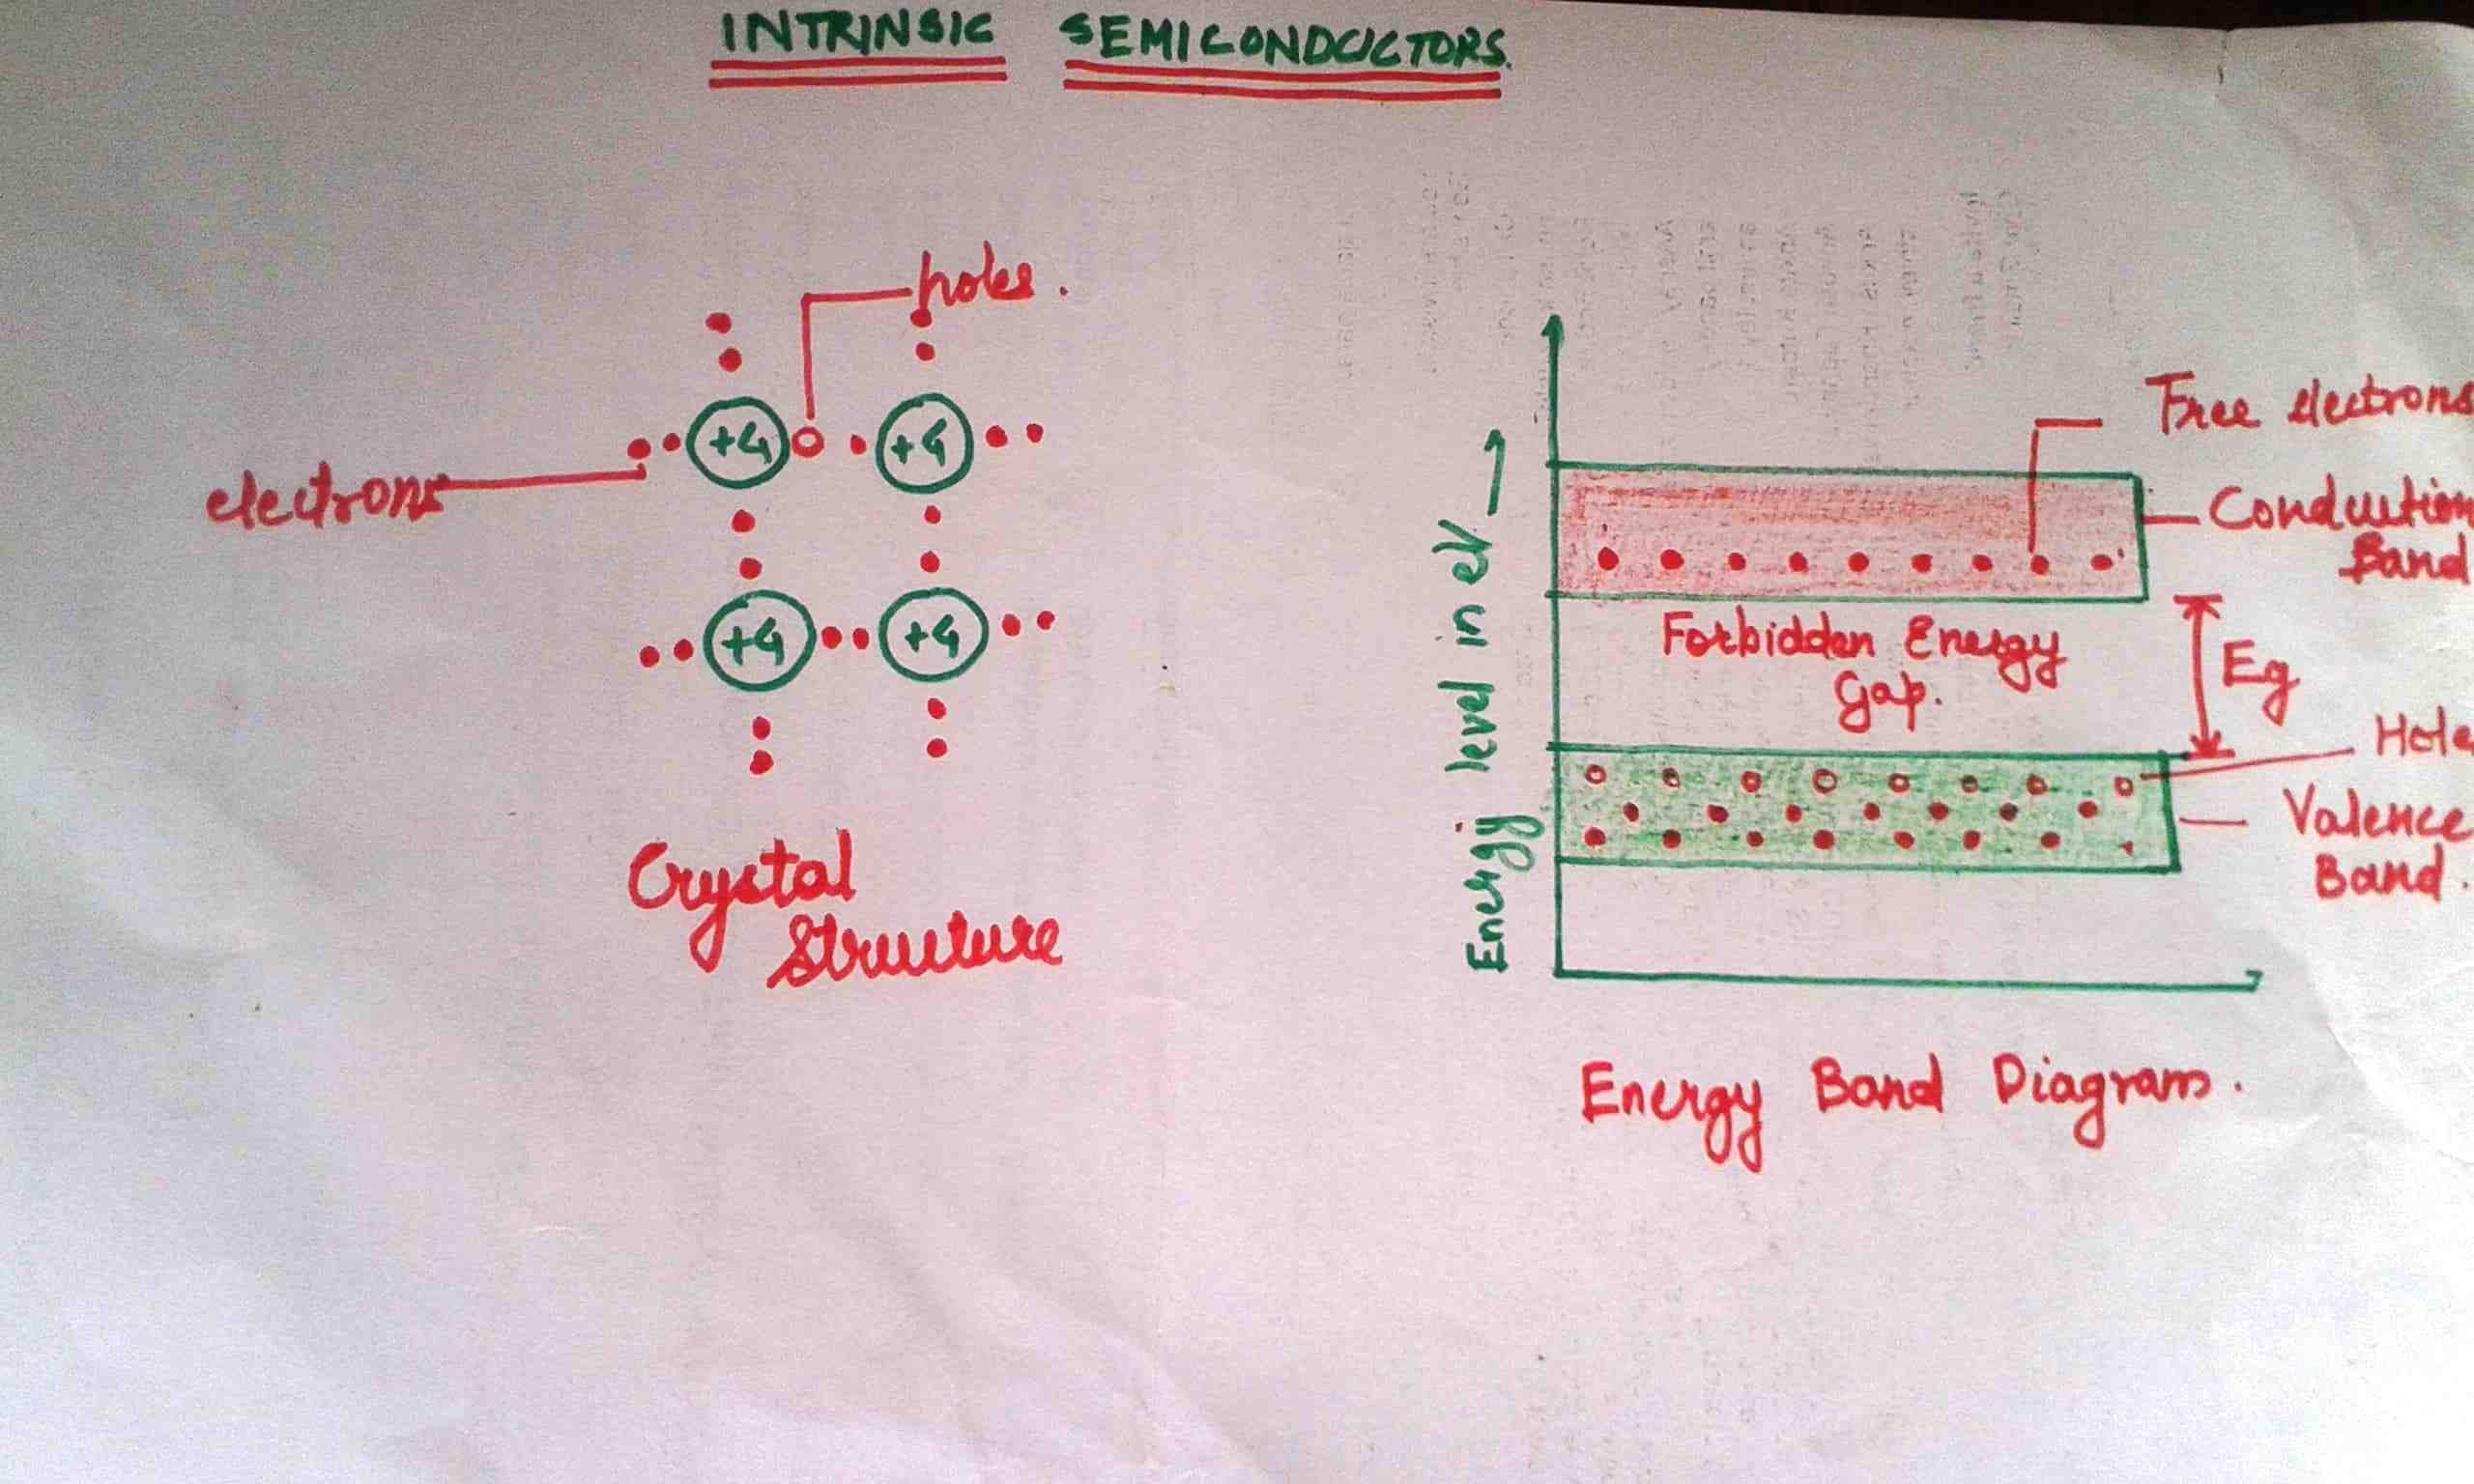 INTRINSIC SEMICONDUCTORS.
holes.
electrons
+4 +4
+4 +4
Crystal
Structure
Energy level in eV
Free electrons
Conduction
Band
Forbidden Energy
Gap.
Eg
Hole
Valence
Band.
Energy Band Diagram.